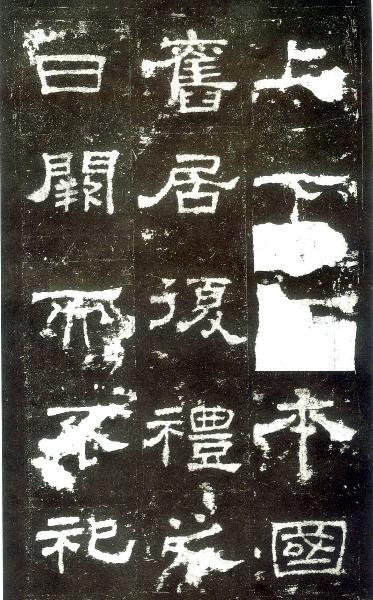 上下本國
舊居復禮之
日闕而不祀